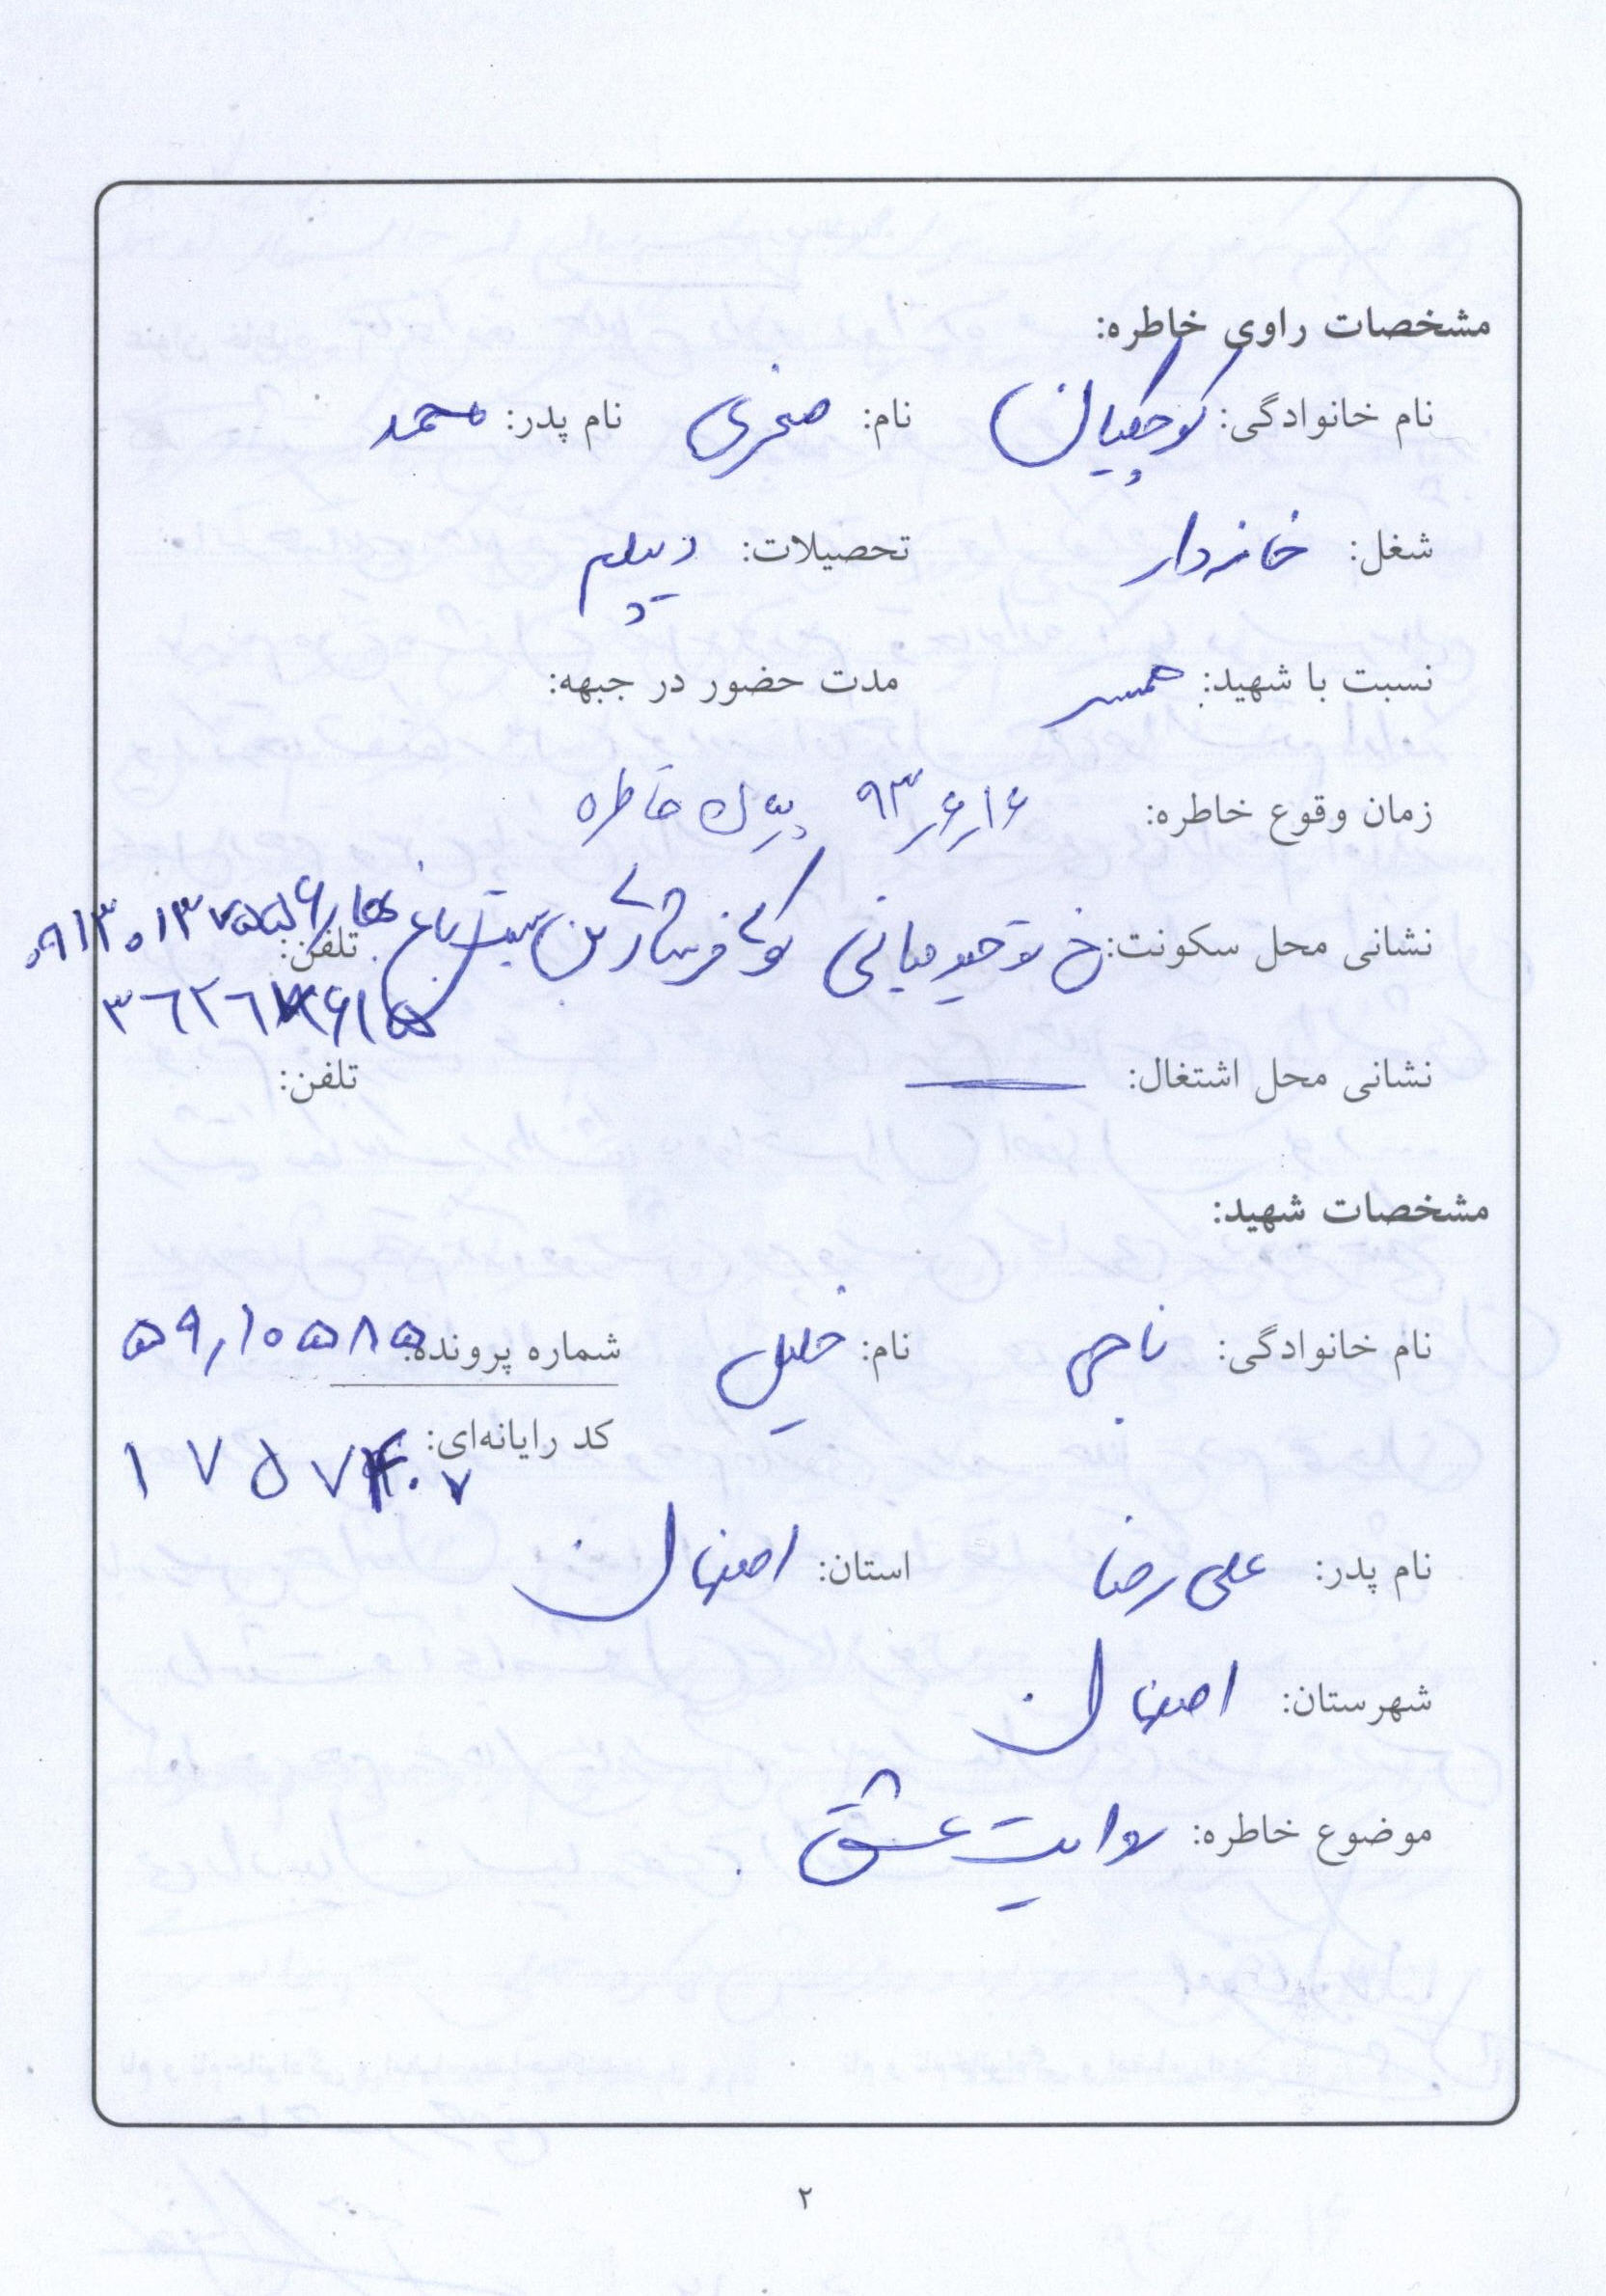 مشخصات راوی خاطره:
نام خانوادگی: کوچکیان نام: صغری نام پدر: محمد
شغل: خانه‌دار تحصیلات: دیپلم
نسبت با شهید: همسر مدت حضور در جبهه:
زمان وقوع خاطره: ۹۳/۶/۱۶ خاطره
نشانی محل سکونت: خ توحید میانی کوی بن بست باغ تلفن:
نشانی محل اشتغال: — تلفن:
مشخصات شهید:
نام خانوادگی: ناجی نام: خلیل شماره پرونده: ۵۹/۱۰۵۸۵
کد رایانه‌ای:
نام پدر: علی رضا استان: اصفهان
شهرستان: اصفهان
موضوع خاطره: روایت عشق
۲